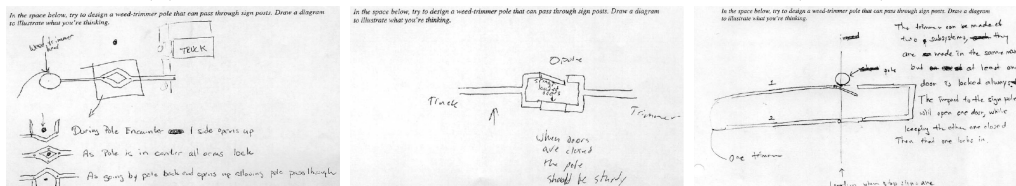 In the space below, try to design a weed-trimmer pole that can pass through sign posts. Draw a diagram
to illustrate what you're thinking.
Weed trimmer
head
TRUCK
During Pole Encounter 1 side opens up
As Pole is in center all arms lock
As going by pole back end opens up allowing pole pass through
In the space below, try to design a weed-trimmer pole that can pass through sign posts. Draw a diagram
to illustrate what you're thinking.
pole
doors
Truck
Trimmer
When doors
are closed
the pole
should be sturdy
In the space below, try to design a weed-trimmer pole that can pass through sign posts. Draw a diagram
to illustrate what you're thinking.
The trimmer can be made of
two subsystems, they
are made in the same way
but at least one
door is locked always
The impact to the sign pole
will open one door, while
keeping the other one closed
Then that one locks in
pole
1
2
One trimmer